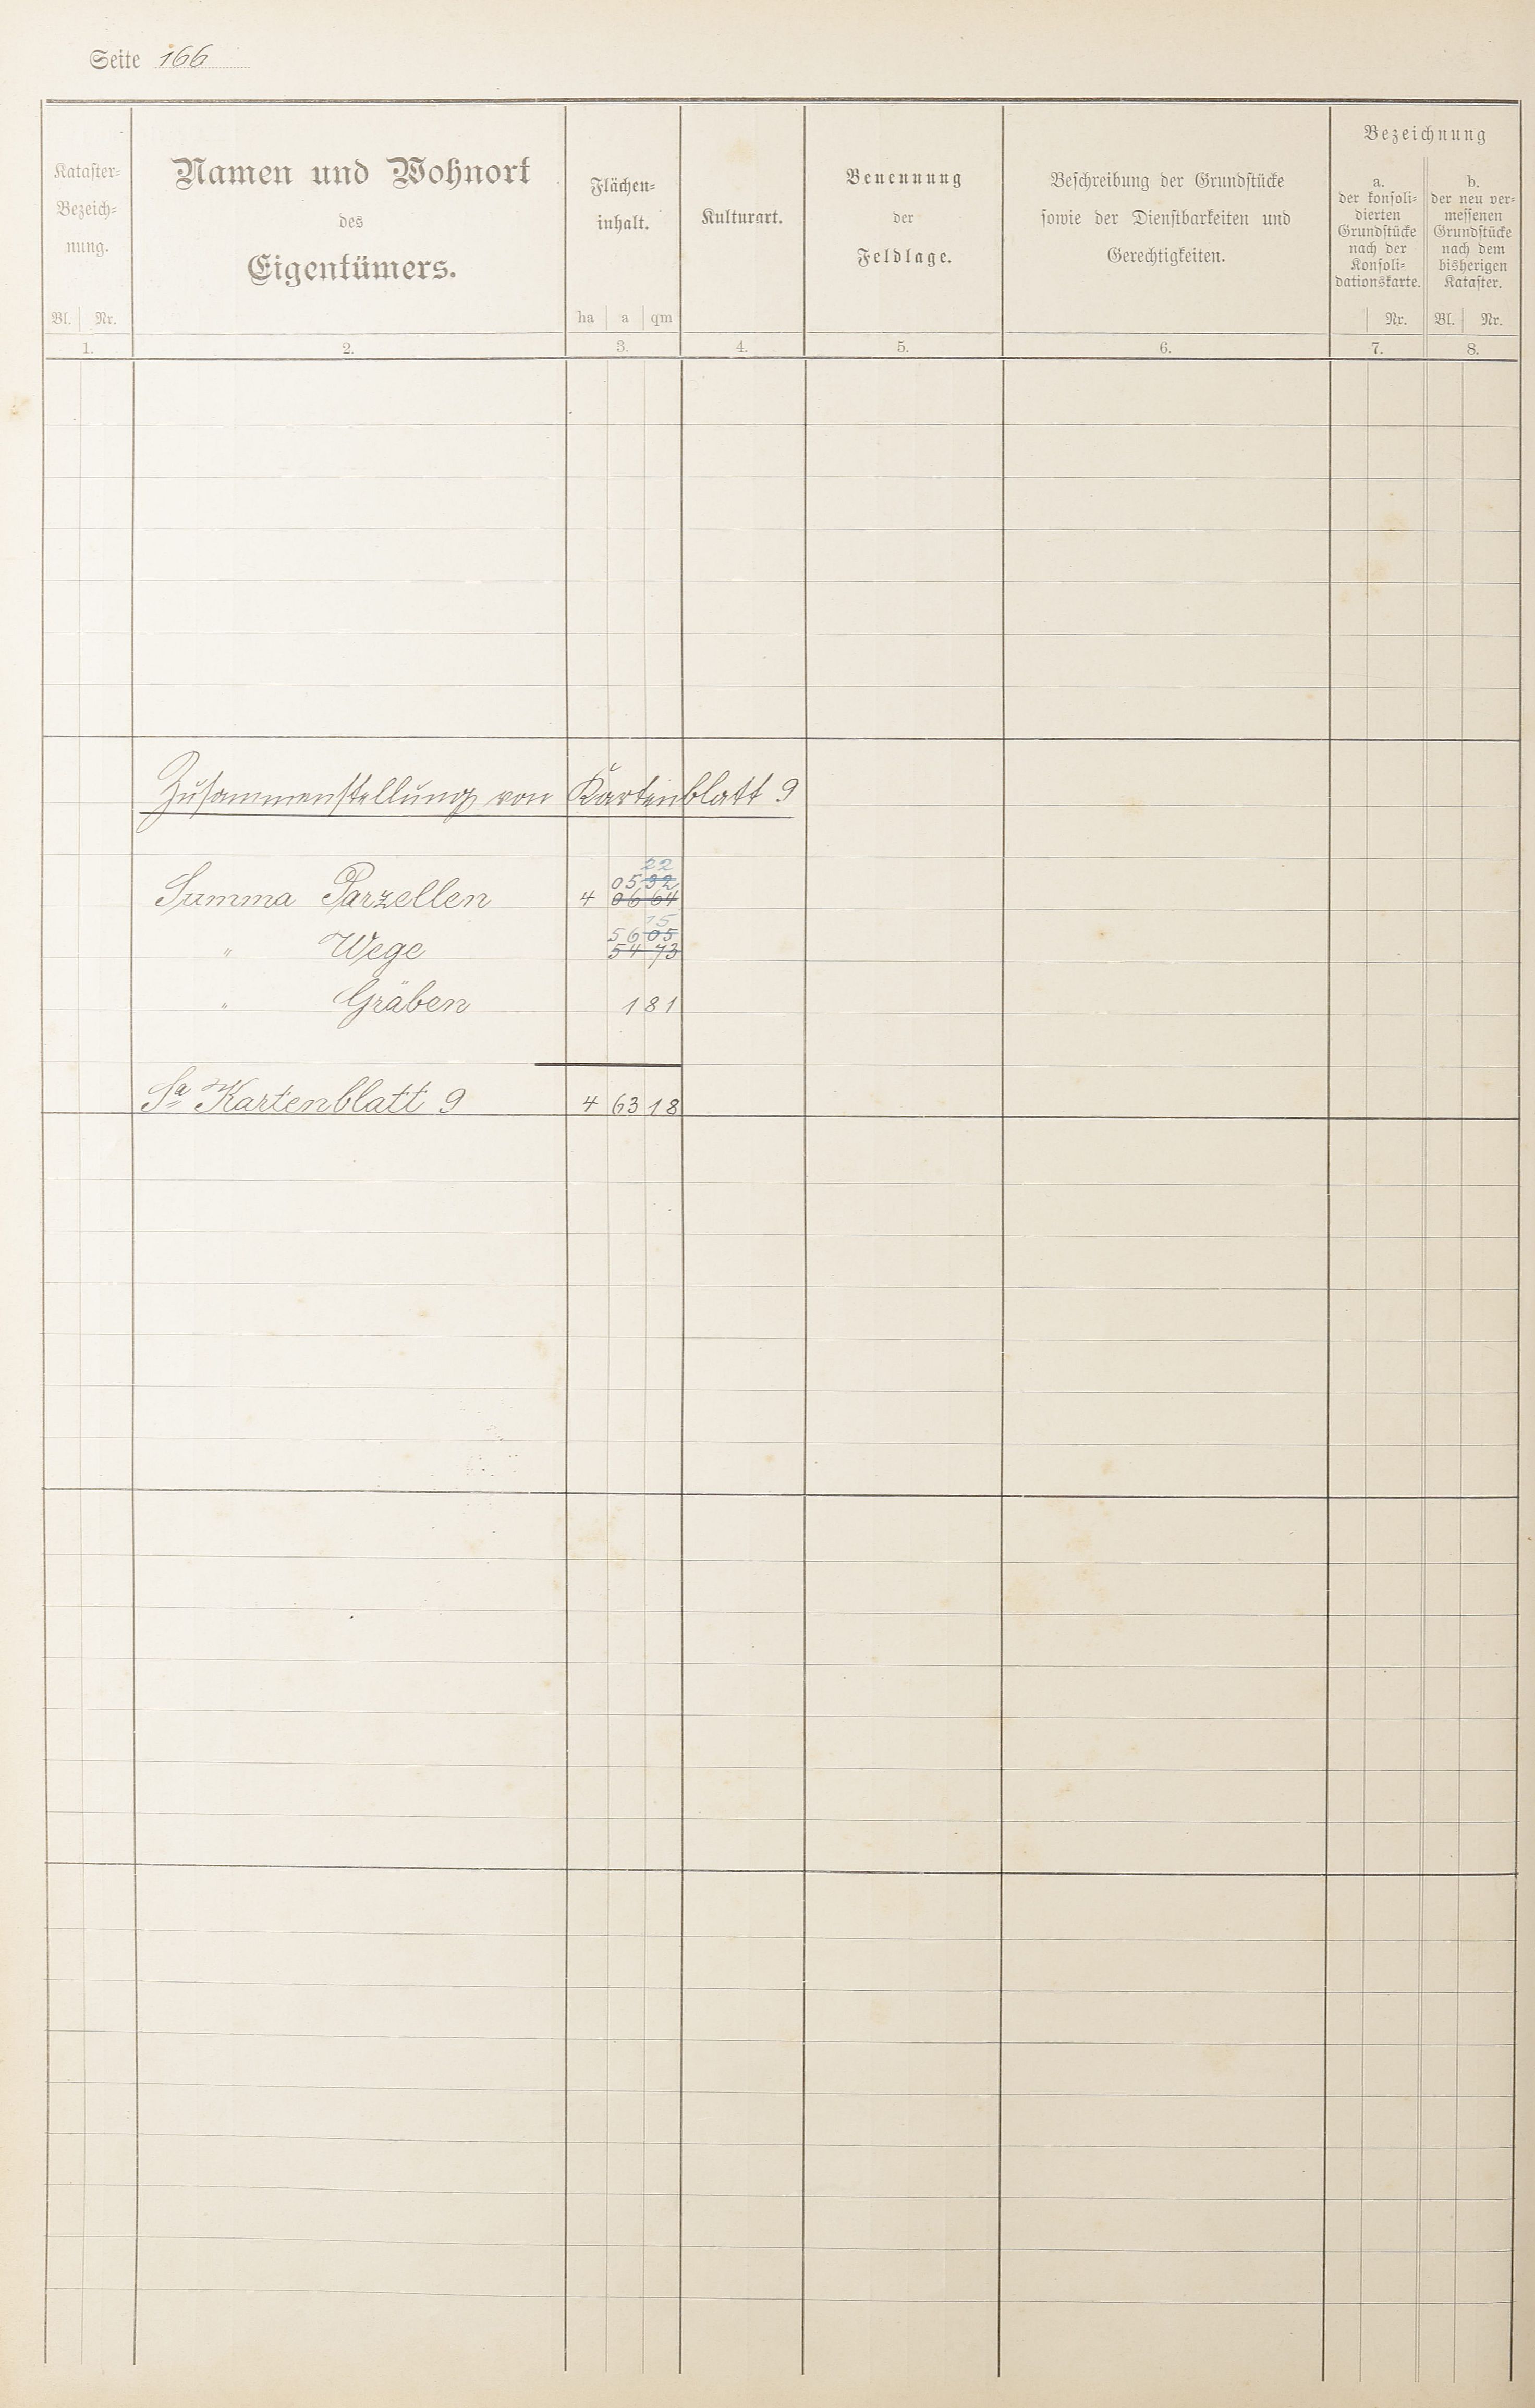 Seite 166
Kataster-
Bezeich-
nung.
Bl. Nr.
1.
Namen und Wohnort
des
Eigentümers.
2.
Flächen-
inhalt.
ha a qm
3.
Kulturart.
4.
Benennung
der
Feldlage.
5.
Beschreibung der Grundstücke
sowie der Dienstbarkeiten und
Gerechtigkeiten.
6.
Bezeichnung
a.
der konsoli-
dierten
Grundstücke
nach der
Konsoli-
dationskarte.
Nr.
7.
b.
der neu ver-
messenen
Grundstücke
nach dem
bisherigen
Kataster.
Bl. Nr.
8.
Zusammenstellung von Kartenblatt 9
22
05 32
Summa Parzellen 4 06 64
15
56 05
" Wege 54 73
" Gräben 1 81
Sa Kartenblatt 9 4 63 18